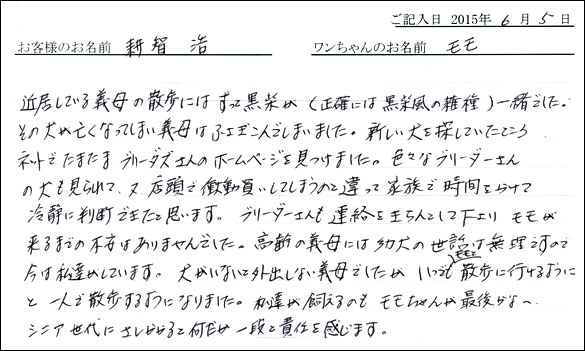 ご記入日 2015年 6月 5日
お客様のお名前 新智 浩 ワンちゃんのお名前 モモ
近居している義母の散歩にはずっと黒柴が(正確には黒柴風の雑種)一緒でした。
その犬が亡くなってしまい義母はふさぎこんでしまいました。新しい犬を探していたところ
ネットでたまたまブリーダーズさんのホームページを見つけました。色々なブリーダーさん
の犬も見られて、又、店頭で衝動買いしてしまうのと違って家族で時間をかけて
冷静に判断できたと思います。ブリーダーさんも連絡をきちんとして下さり モモが
来るまでの不安はありませんでした。高齢の義母には幼犬の世話は無理ですので
今は私達がしています。犬がいないと外出しない義母でしたが いつでも散歩に行けるように
と一人で散歩するようになりました。私達が飼えるのも モモちゃんが最後かな〜
シニア世代にさしかかると何だか一段と責任を感じます。